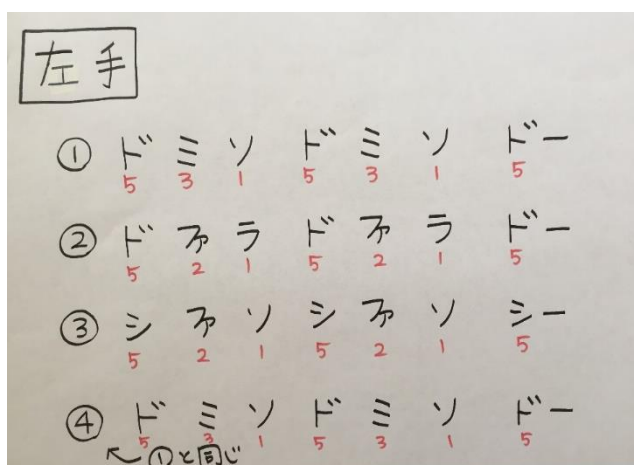 左手
① ド ミ ソ ド ミ ソ ドー
5 3 1 5 3 1 5
② ド ファ ラ ド ファ ラ ドー
5 2 1 5 2 1 5
③ シ ファ ソ シ ファ ソ シー
5 2 1 5 2 1 5
④ ド ミ ソ ド ミ ソ ドー
5 3 1 5 3 1 5
①と同じ